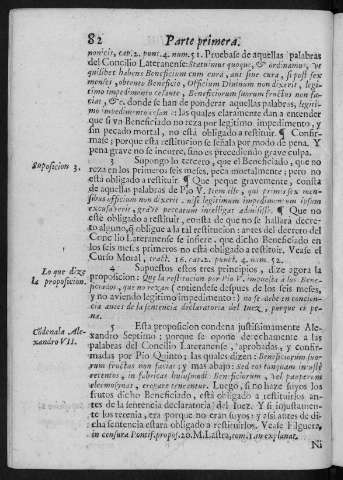 82 Parte primera.
non'eis, cap. 2. punt. 4. num. 51. Pruebase de aquellas palabras
del Concilio Lateranense: Statuimus quoque, & ordinamus, ut
quilibet habens Beneficium cum cura, aut sine cura, si post sex
menses, obtento Beneficio, Officium Divinum non dixerit, legi-
timo impedimento cessante, Beneficiorum suorum fructus non fa-
ciat, &c. donde se han de ponderar aquellas palabras, legiti-
mo impedimento cessan: las quales claramente dan a entender
que si vn Beneficiado no reza por legitimo impedimento, y
sin pecado mortal, no está obligado a restituir. ¶ Confir-
mase; porque esta restitucion se señala por modo de pena. Y
pena grave no se incurre, sino es precediendo grave culpa.
Suposicion 3.
3 Supongo lo tercero, que el Beneficiado, que no
reza en los primeros seis meses, peca mortalmente; pero no
está obligado a restituir. ¶ Que peque gravemente, consta
de aquellas palabras de Pio V. Item illo, qui primis sex men-
sibus officium non dixerit, nisi legitimum impedimentum ipsum
excusaverit, grave peccatum intelligat admisisse. ¶ Que no
esté obligado a restituir, consta de que no se hallará decre-
to alguno, q̃ obligue a la tal restitucion: antes del decreto del
Concilio Lateranense se infiere, que dicho Beneficiado en
los seis mes.s primeros no está obligado a restituir. Vease el
Curso Moral, tract. 16. cap. 2. punct. 4. num. 52.
Lo que dize
la proposicion.
4 Supuestos estos tres principios, dize agora la
proposicion: Que la restitucion por Pio V. impuesta a los Bene-
ficiados, que no rezan (entiendese despues de los seis meses,
y no aviendo legitimo impedimento) no se debe en concien-
cia antes de la sentencia declaratoria del Iuez, porque es pe-
na.
Cõdenala Ale-
xandro VII.
5 Esta proposicion condena justissimamente Ale-
xandro Septimo; porque se opone derechamente a las
palabras del Concilio Lateranense, aprobadas, y confir-
madas por Pio Quinto; las quales dizen: Beneficiorum suo-
rum fructus non faciat; y mas abaxo: sed eos tanquam iniustè
perceptos, in fabricas huiusmodi Beneficiorum, vel pauperum
eleemosynas, erogare teneantur. Luego, si no haze suyos los
frutos dicho Beneficiado, está obligado a restituirlos an-
tes de la sentencia declaratoria del Iuez. Y si injustamen-
te los retenia, era porque no eran suyos: y assi antes de di-
cha sentencia estará obligado a restituirlos. Vease Filguera,
in censura Pontif. propos. 20. M. Lastra, tom. 1 an explanat.
Ni